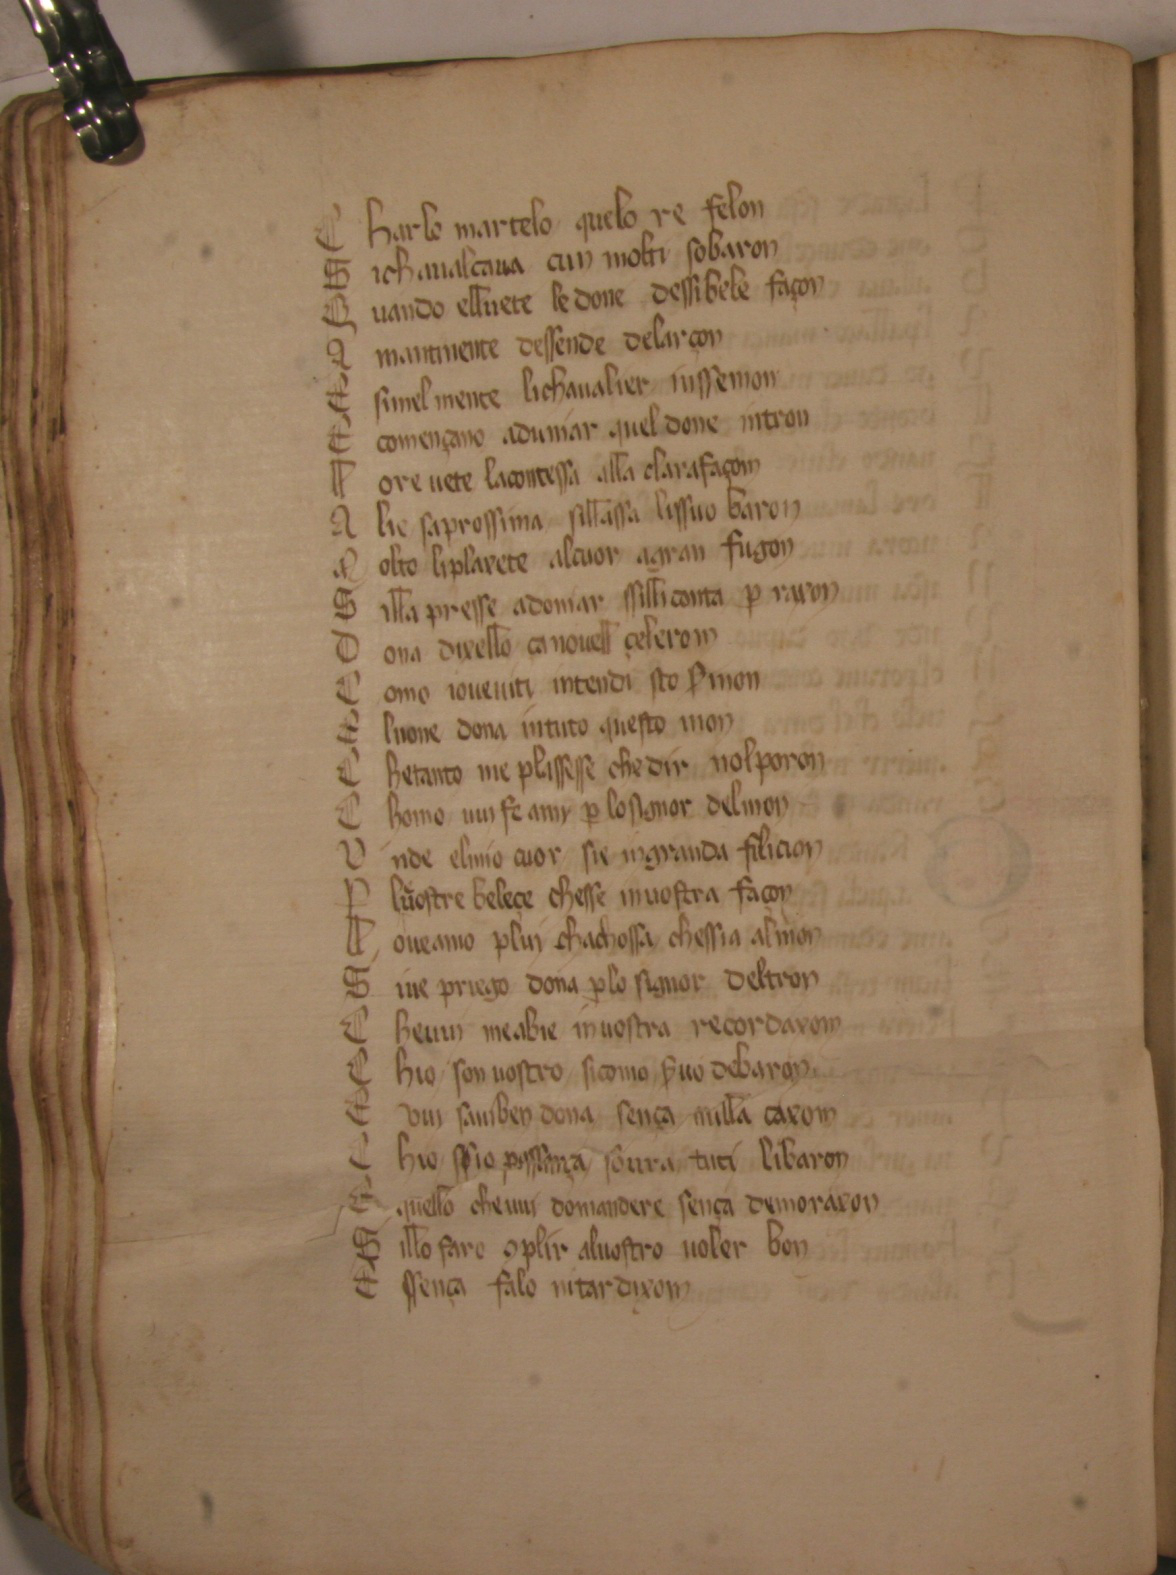 C harlo martelo quelo re felon
S ichaualcaua cun molti sobaron
Q uando elluete le done dessibele façon
A mantinente dessende delarçon
E simel mente lichaualier inssemon
E començano adumar quel done intron
F ore uete lacontessa alla clarafaçon
A lie saprossima sillassa lissuo baron
M olto liplaxete alcuor agran fugon
S illa presse adomar ssilliconta p raxon
D ona dixello ça nouell çeleron
C omo ioueniti intendi sto smon
E luone dona intuto questo mon
C hetanto me plissesse che dir nolporon
C homo uui fe amy p lo signor delmon
V nde elmio cuor sie ingranda filicion
P luostre beleçe chesse inuostra façon
F oueamo plui chachossa chessia almon
S ue priego dona plo signor deltron
C heuui meabie inuostra recordaxon
C hio son uostro sicomo suo debaron
E vui sauiben dona sença nulla caxon
C hio ssio possança soura tuti libaron
E quello cheuui domandere sença demoraxon
S illo faro 9plir aluostro uoler bon
E ssença falo nitardixon